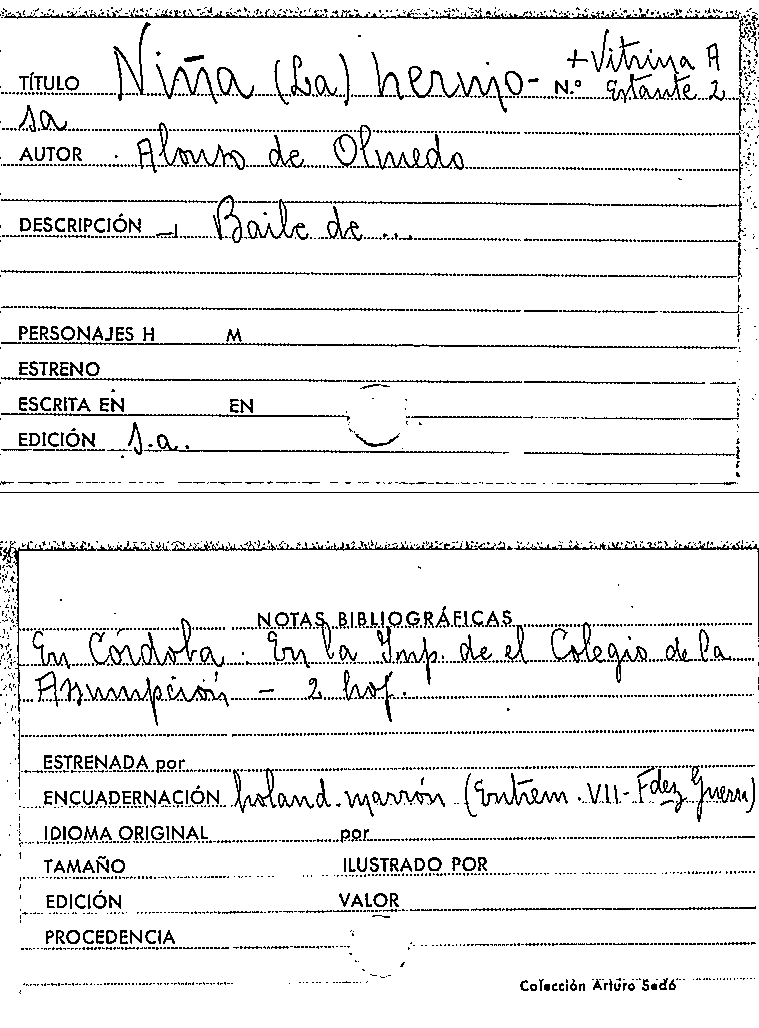 TÍTULO Niña (La) hermo- + Vitrina A
N.º Estante 2
sa
AUTOR . Alonso de Olmedo
DESCRIPCIÓN - Baile de ...
PERSONAJES H M
ESTRENO
ESCRITA EN EN
EDICIÓN s.a.
NOTAS BIBLIOGRÁFICAS
En Córdoba. En la Imp. de el Colegio de la
Assumpción - 2 hoj.
ESTRENADA por
ENCUADERNACIÓN holand. marrón (Entrem. VII - Fdez Guerra)
IDIOMA ORIGINAL por
TAMAÑO ILUSTRADO POR
EDICIÓN VALOR
PROCEDENCIA
Colección Arturo Sedó